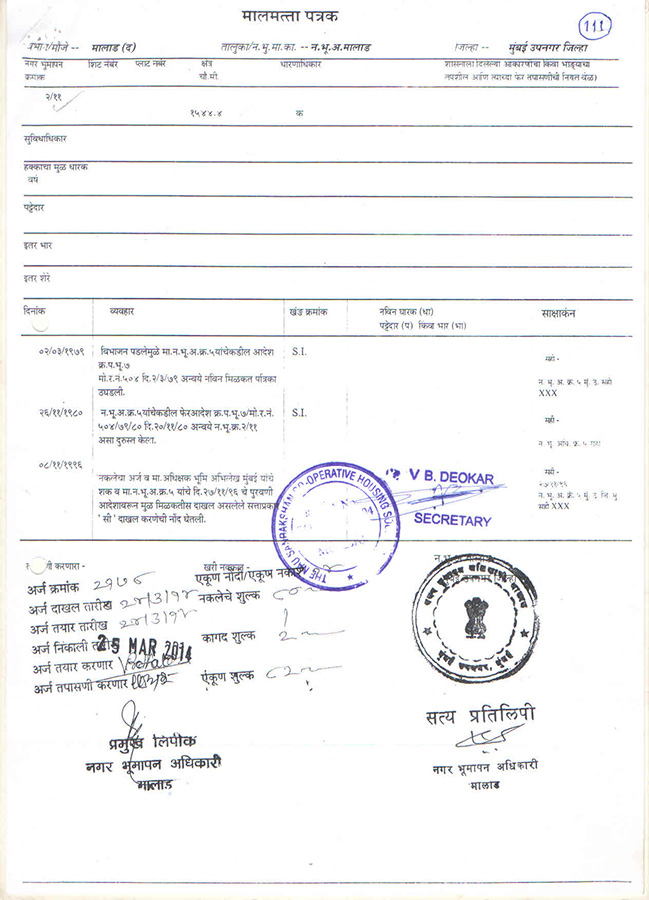 मालमत्ता पत्रक
111
मालाड (द) तालुका/न.भु.मा.का. -- न.भू.अ.मालाड जिल्हा -- मुंबई उपनगर जिल्हा
नगर भुमापन शिट नंबर प्लाट नंबर क्षेत्र धारणाधिकार शासनाला दिलेल्या आकारणीचा किंवा भाड्याचा
क्रमांक चौ.मी. तपशील आणि त्याच्या फेर तपासणीची नियत वेळ)
२/११
१५४४.४ क
सुविधाधिकार
हक्काचा मुळ धारक
वर्ष
पट्टेदार
इतर भार
इतर शेरे
दिनांक व्यवहार खंड क्रमांक नविन धारक (धा) साक्षाकंन
पट्टेदार (प) किंवा भार (भा)
०२/०३/१९७९ विभाजन पडलेमुळे मा.न.भू.अ.क्र.५यांचेकडील आदेश S.I. सही -
क्र.प.भू.७
मो.र.नं.५०४ दि.२/३/७९ अन्वये नविन मिळकत पत्रिका न. भू. अ. क्र. ५ मुं. उ.
उघडली. XXX
२६/११/१९८० न.भू.अ.क्र.५यांचेकडील फेरआदेश क्र.प.भू.७/मो.र.नं. S.I. सही -
५०४/७९/८० दि.२०/११/८० अन्वये न.भू.क्र.२/११
असा दुरुस्त केला.
०८/११/१९९६ सही -
नकलेचा अर्ज व मा.अधिक्षक भूमि अभिलेख मुंबई यांचे २७/११/९६
शक व मा.न.भू.अ.क्र.५ यांचे दि.२७/११/९६ चे पुरवणी न. भू. अ. क्र. ५ मुं. उ.
आदेशावरून मुळ मिळकतीस दाखल असलेले सत्ताप्रकार सही XXX
' सी ' दाखल करणेची नोंद घेतली.
CO-OPERATIVE HOUSING
V B. DEOKAR
SECRETARY
करणारा - खरी नक्कल
अर्ज क्रमांक २१७६ एकूण नोंदी/एकूष
अर्ज दाखल तारीख नकलेचे शुल्क
अर्ज तयार तारीख
अर्ज निकाली कागद शुल्क
25 MAR 2014
अर्ज तयार करणार
अर्ज तपासणी करणार एंकूण शुल्क
प्रमुख लिपीक
नगर भूमापन अधिकारी
मालाड
सत्य प्रतिलिपी
नगर भूमापन अधिकारी
मालाड